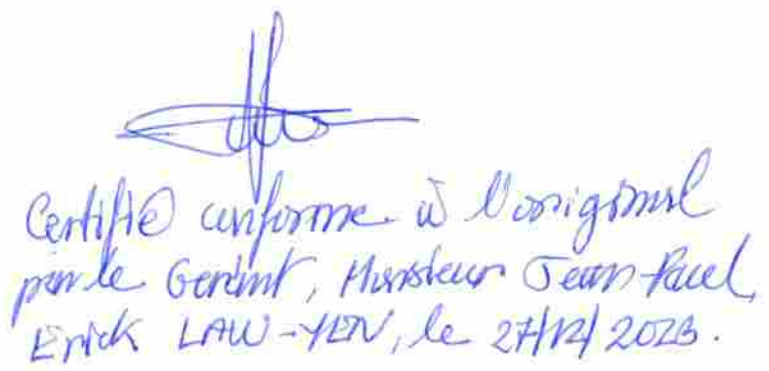 Certifié conforme à l'original
par le Gérant, Monsieur Jean-Paul,
Erick LAW-YEN, le 27/12/2023.